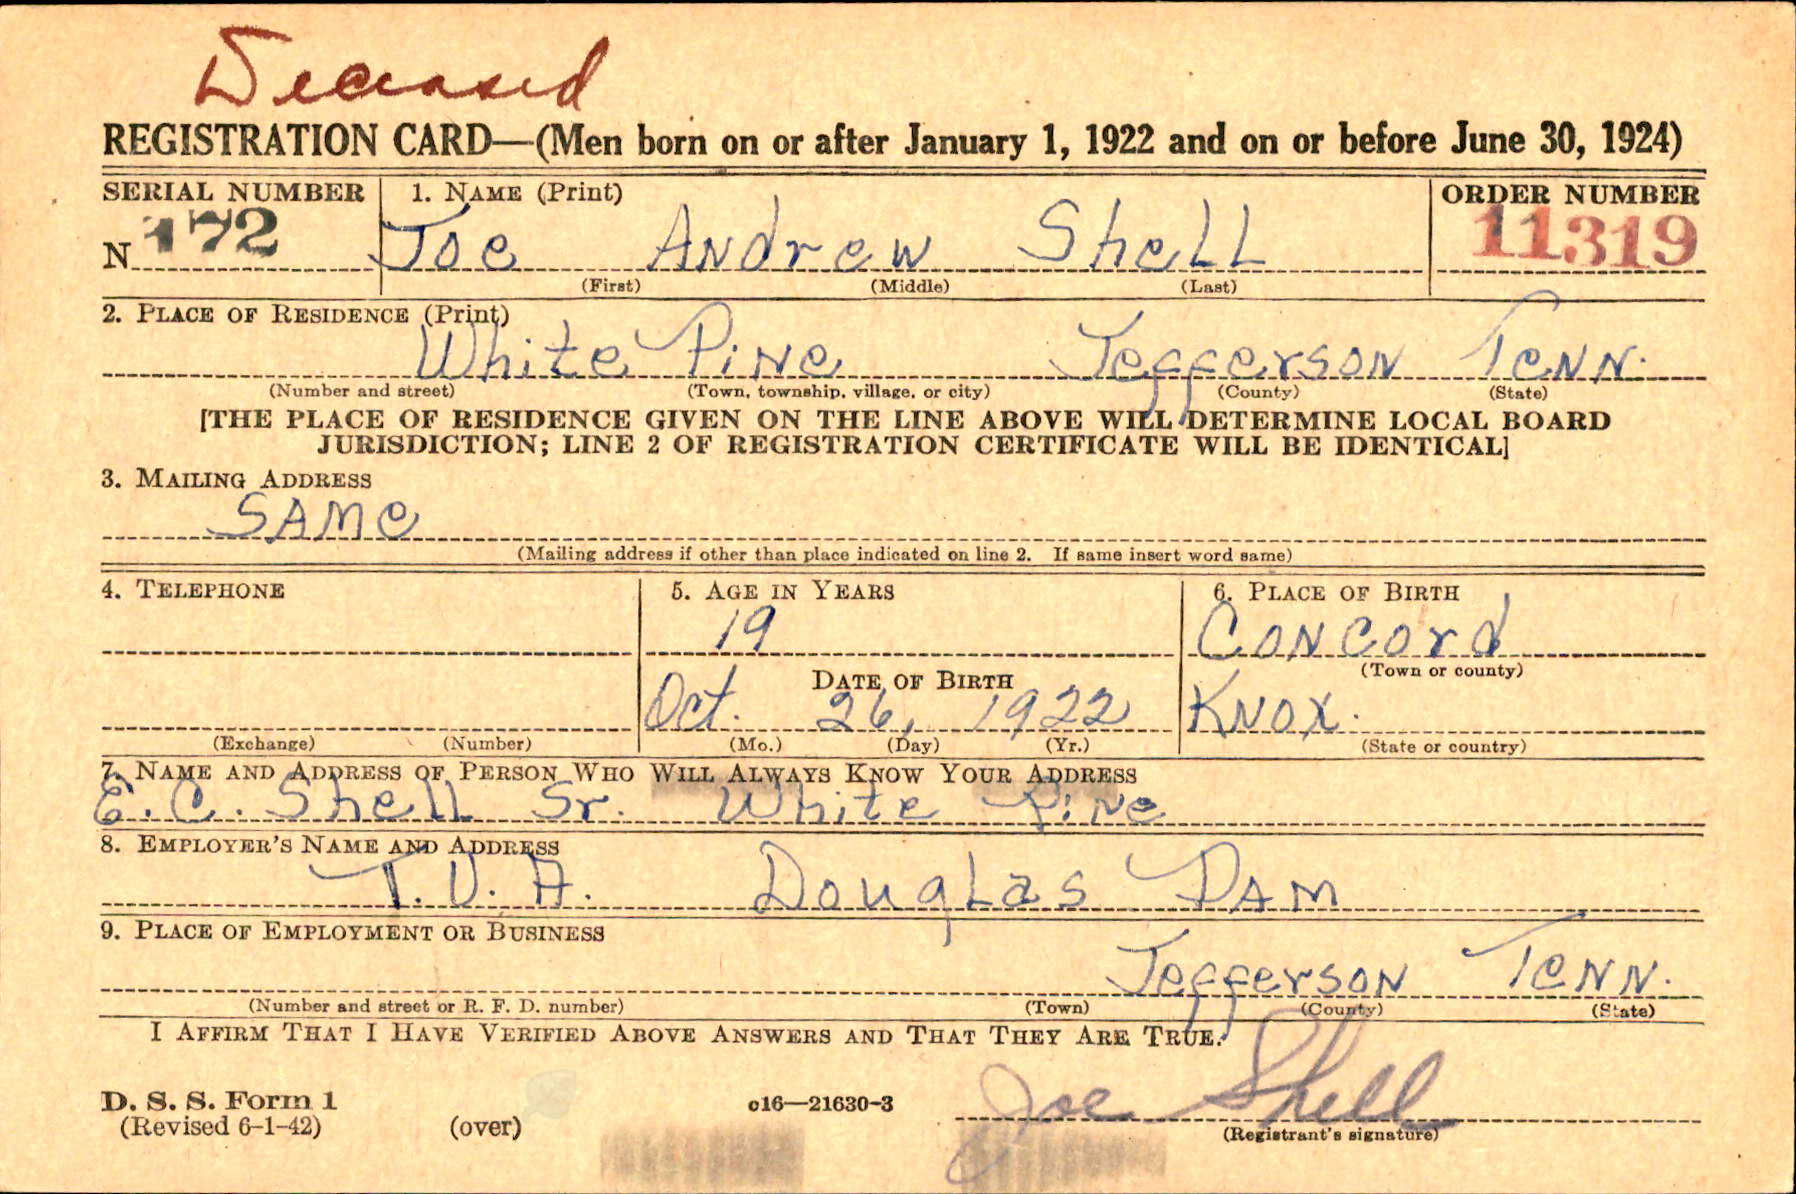 Deceased
REGISTRATION CARD—(Men born on or after January 1, 1922 and on or before June 30, 1924)
SERIAL NUMBER 1. NAME (Print) ORDER NUMBER
N 172 Joe Andrew Shell 11319
(First) (Middle) (Last)
2. PLACE OF RESIDENCE (Print)
White Pine Jefferson Tenn.
(Number and street) (Town, township, village, or city) (County) (State)
[THE PLACE OF RESIDENCE GIVEN ON THE LINE ABOVE WILL DETERMINE LOCAL BOARD
JURISDICTION; LINE 2 OF REGISTRATION CERTIFICATE WILL BE IDENTICAL]
3. MAILING ADDRESS
SAME
(Mailing address if other than place indicated on line 2. If same insert word same)
4. TELEPHONE 5. AGE IN YEARS 6. PLACE OF BIRTH
19 Concord
(Town or county)
DATE OF BIRTH
Oct. 26, 1922 Knox.
(Exchange) (Number) (Mo.) (Day) (Yr.) (State or country)
7. NAME AND ADDRESS OF PERSON WHO WILL ALWAYS KNOW YOUR ADDRESS
E. C. Shell Sr. White Pine
8. EMPLOYER'S NAME AND ADDRESS
T. V. A. Douglas Dam
9. PLACE OF EMPLOYMENT OR BUSINESS
Jefferson Tenn.
(Number and street or R. F. D. number) (Town) (County) (State)
I AFFIRM THAT I HAVE VERIFIED ABOVE ANSWERS AND THAT THEY ARE TRUE.
D. S. S. Form 1
(Revised 6-1-42) (over) c16—21630-3 Joe Shell
(Registrant's signature)